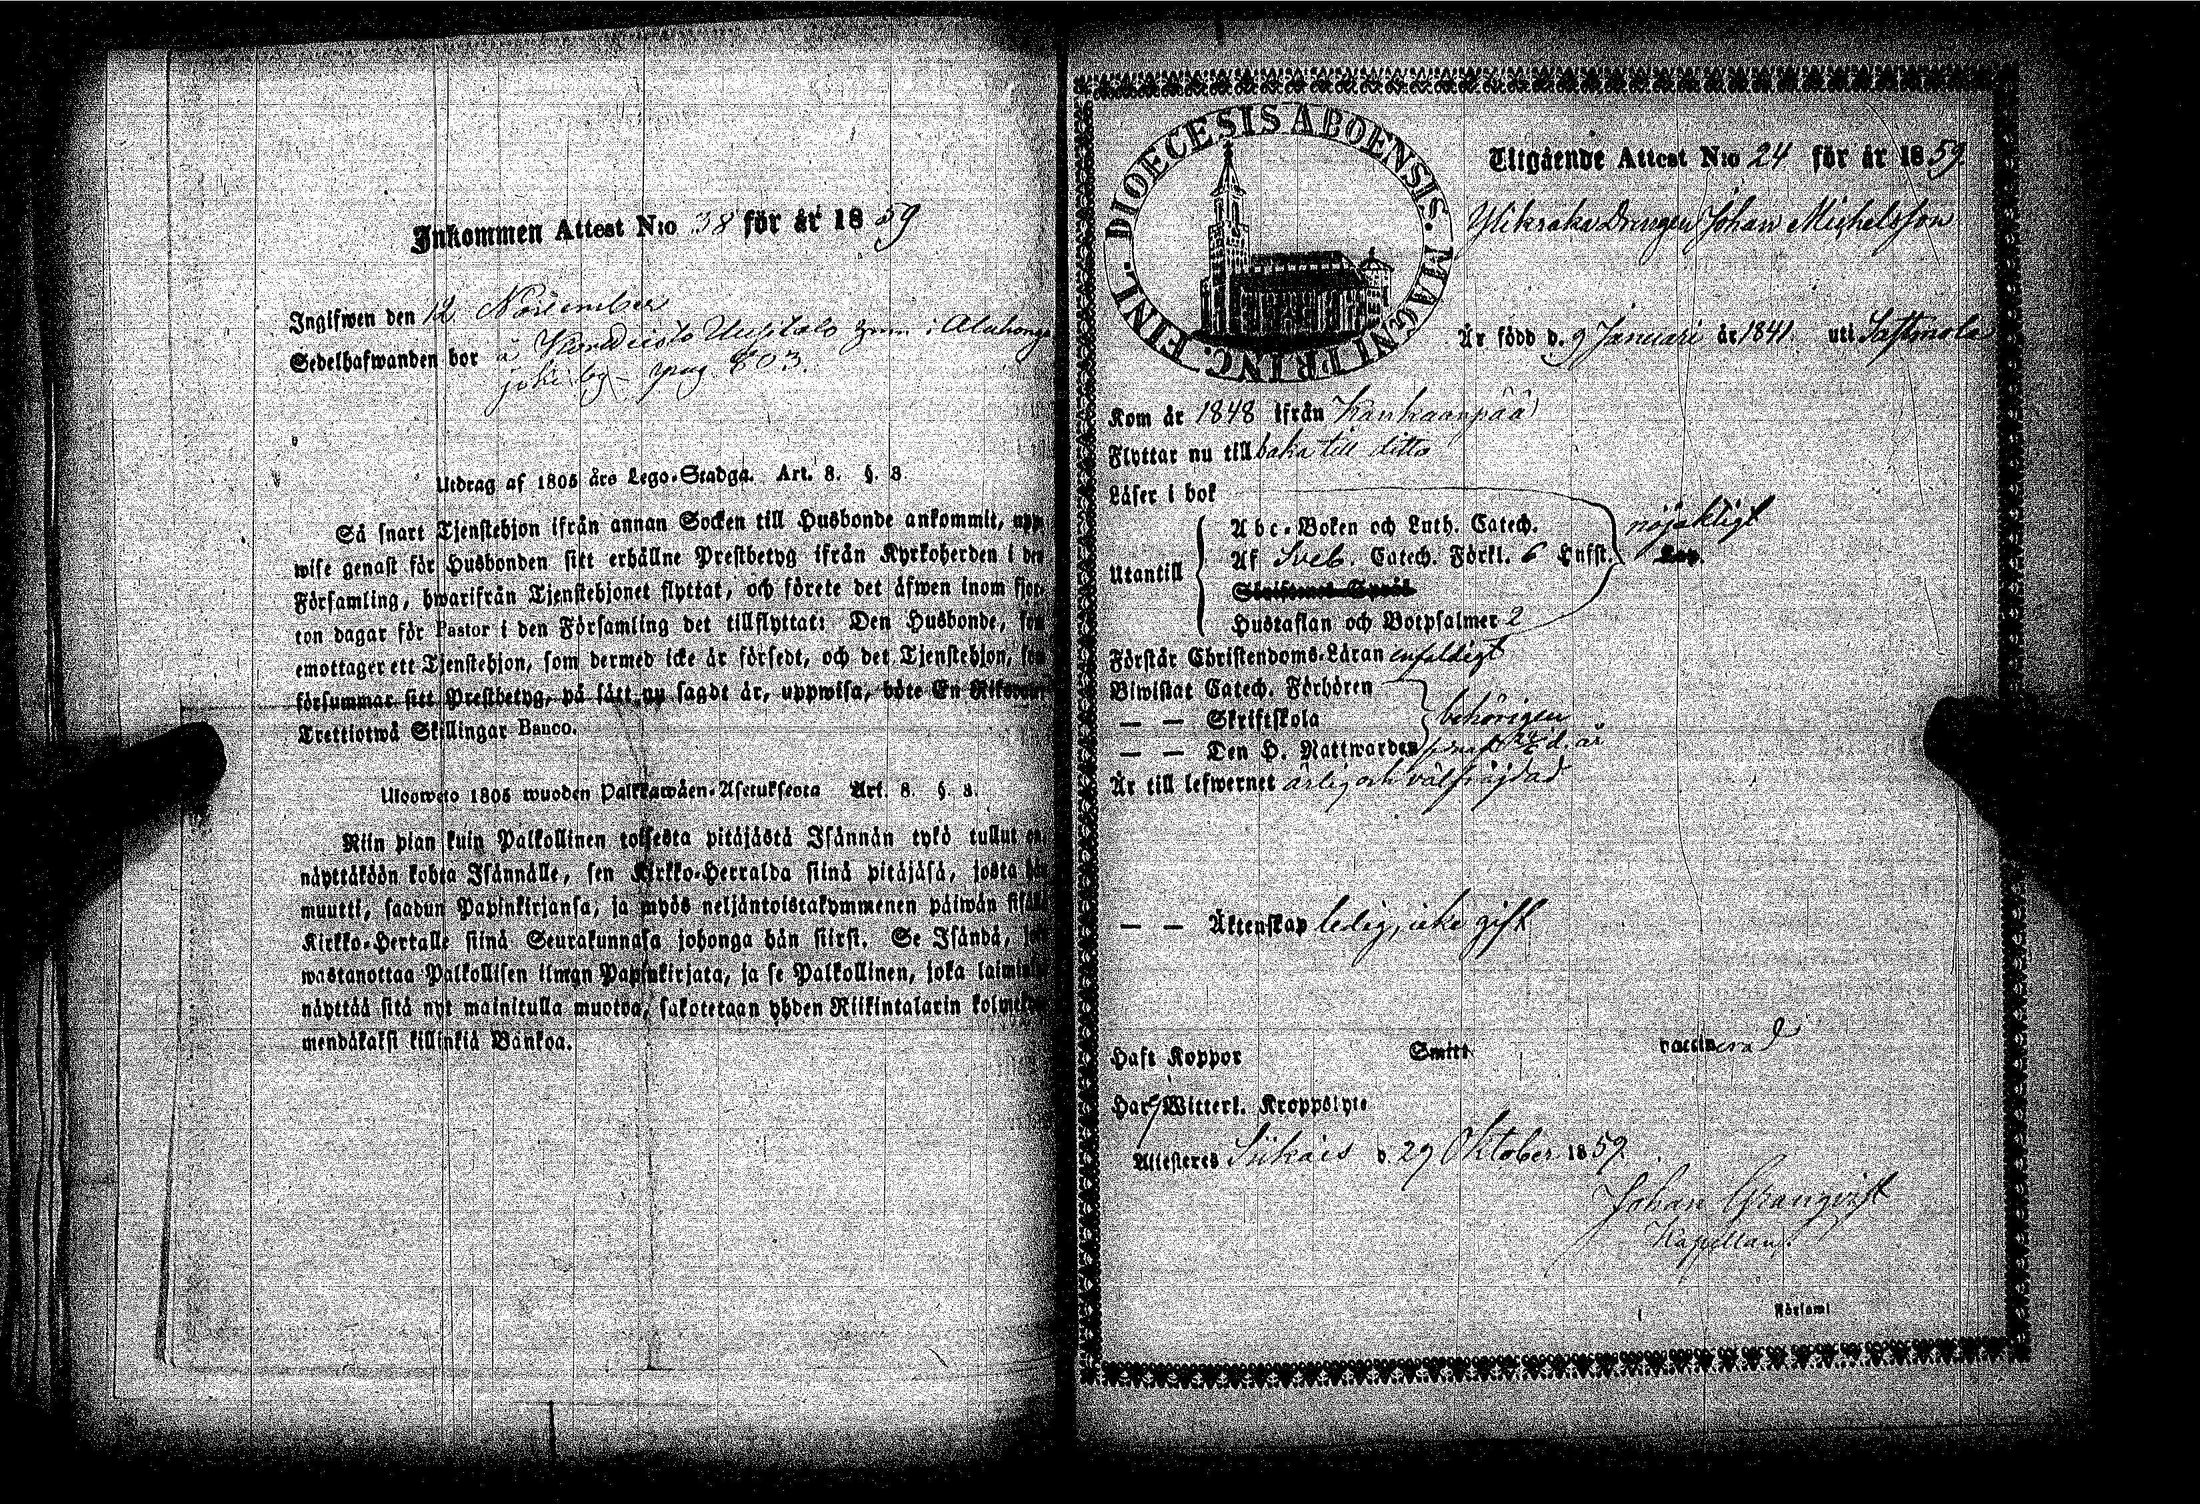 Inkommen Attest N:o 38 för år 1859
Ingifwen den 12 November
Sedelhafwanden bor å
joki by pag. 803.
Utdrag af 1805 års Lego-Stadga. Art. 8. §. 8
Så snart Tjenstehjon ifrån annan Socken till Husbonde ankommit, upp-
wise genast för Husbonden sitt erhållne Prestbetyg ifrån Kyrkoherden i den
Församling, hwarifrån Tjenstehjonet flyttat, och förete det äfwen inom fjor-
ton dagar för Pastor i den Församling det tillflyttat: Den Husbonde, som
emottager ett Tjenstehjon, som dermed icke är försedt, och det Tjenstehjon, som
försummar sitt Prestbetyg, på sätt nu sagdt är, uppwisa, böte En Riksdaler
Trettiotwå Skillingar Banco.
Ulosweto 1805 wuoden Palkkawäen-Asetuksesta Art. 8. §. 8.
Niin pian kuin Palkollinen toisesta pitäjästä Isännän tykö tullut on
näyttäköön kohta Isännälle, sen Kirkko-Herralda siinä pitäjäsä, josta hän
muutti, saadun Papinkirjansa, ja myös neljäntoistakymmenen päiwän sisällä
Kirkko-Hertalle siinä Seurakunnasa johonga hän siirsi. Se Isändä, joka
wastanottaa Palkollisen ilman Papinkirjata, ja se Palkollinen, joka laimin
näyttää sitä nyt mainitulla muotoa, sakotetaan yhden Riikintalarin kolmekym-
mendäkaksi killinkiä Bankoa.
DIOECESIS ABOENSIS. MAGNI PRINC. FINL.
Utgående Attest N:o 24 för år 1859.
Drengen Johan Michelsson
Är född d. 9 Januari år 1841. uti Sastmola
Kom år 1848 ifrån Kankaanpää
Flyttar nu tillbaka till ditto
Läser i bok
Utantill
Abc-Boken och Luth. Catech.
nöjaktigt
Af Sveb. Catech. Förkl. 6 Hufst.
Hustaflan och Botpsalmer 2
Förstår Christendoms-Läran enfaldigt
Biwistat Catech. Förhören
— — Skriftskola
behörigen
— — Den H. Nattwarden
Är till lefwernet ärlig och välfräjdad
— — Äktenskap ledig, icke gift
Haft Koppor Smitt vaccinerad
Har Witterl. Kroppslyte
Attesteres Siikais d. 29 Oktober 1859.
Johan Granqvist
Kapellan.
Församl